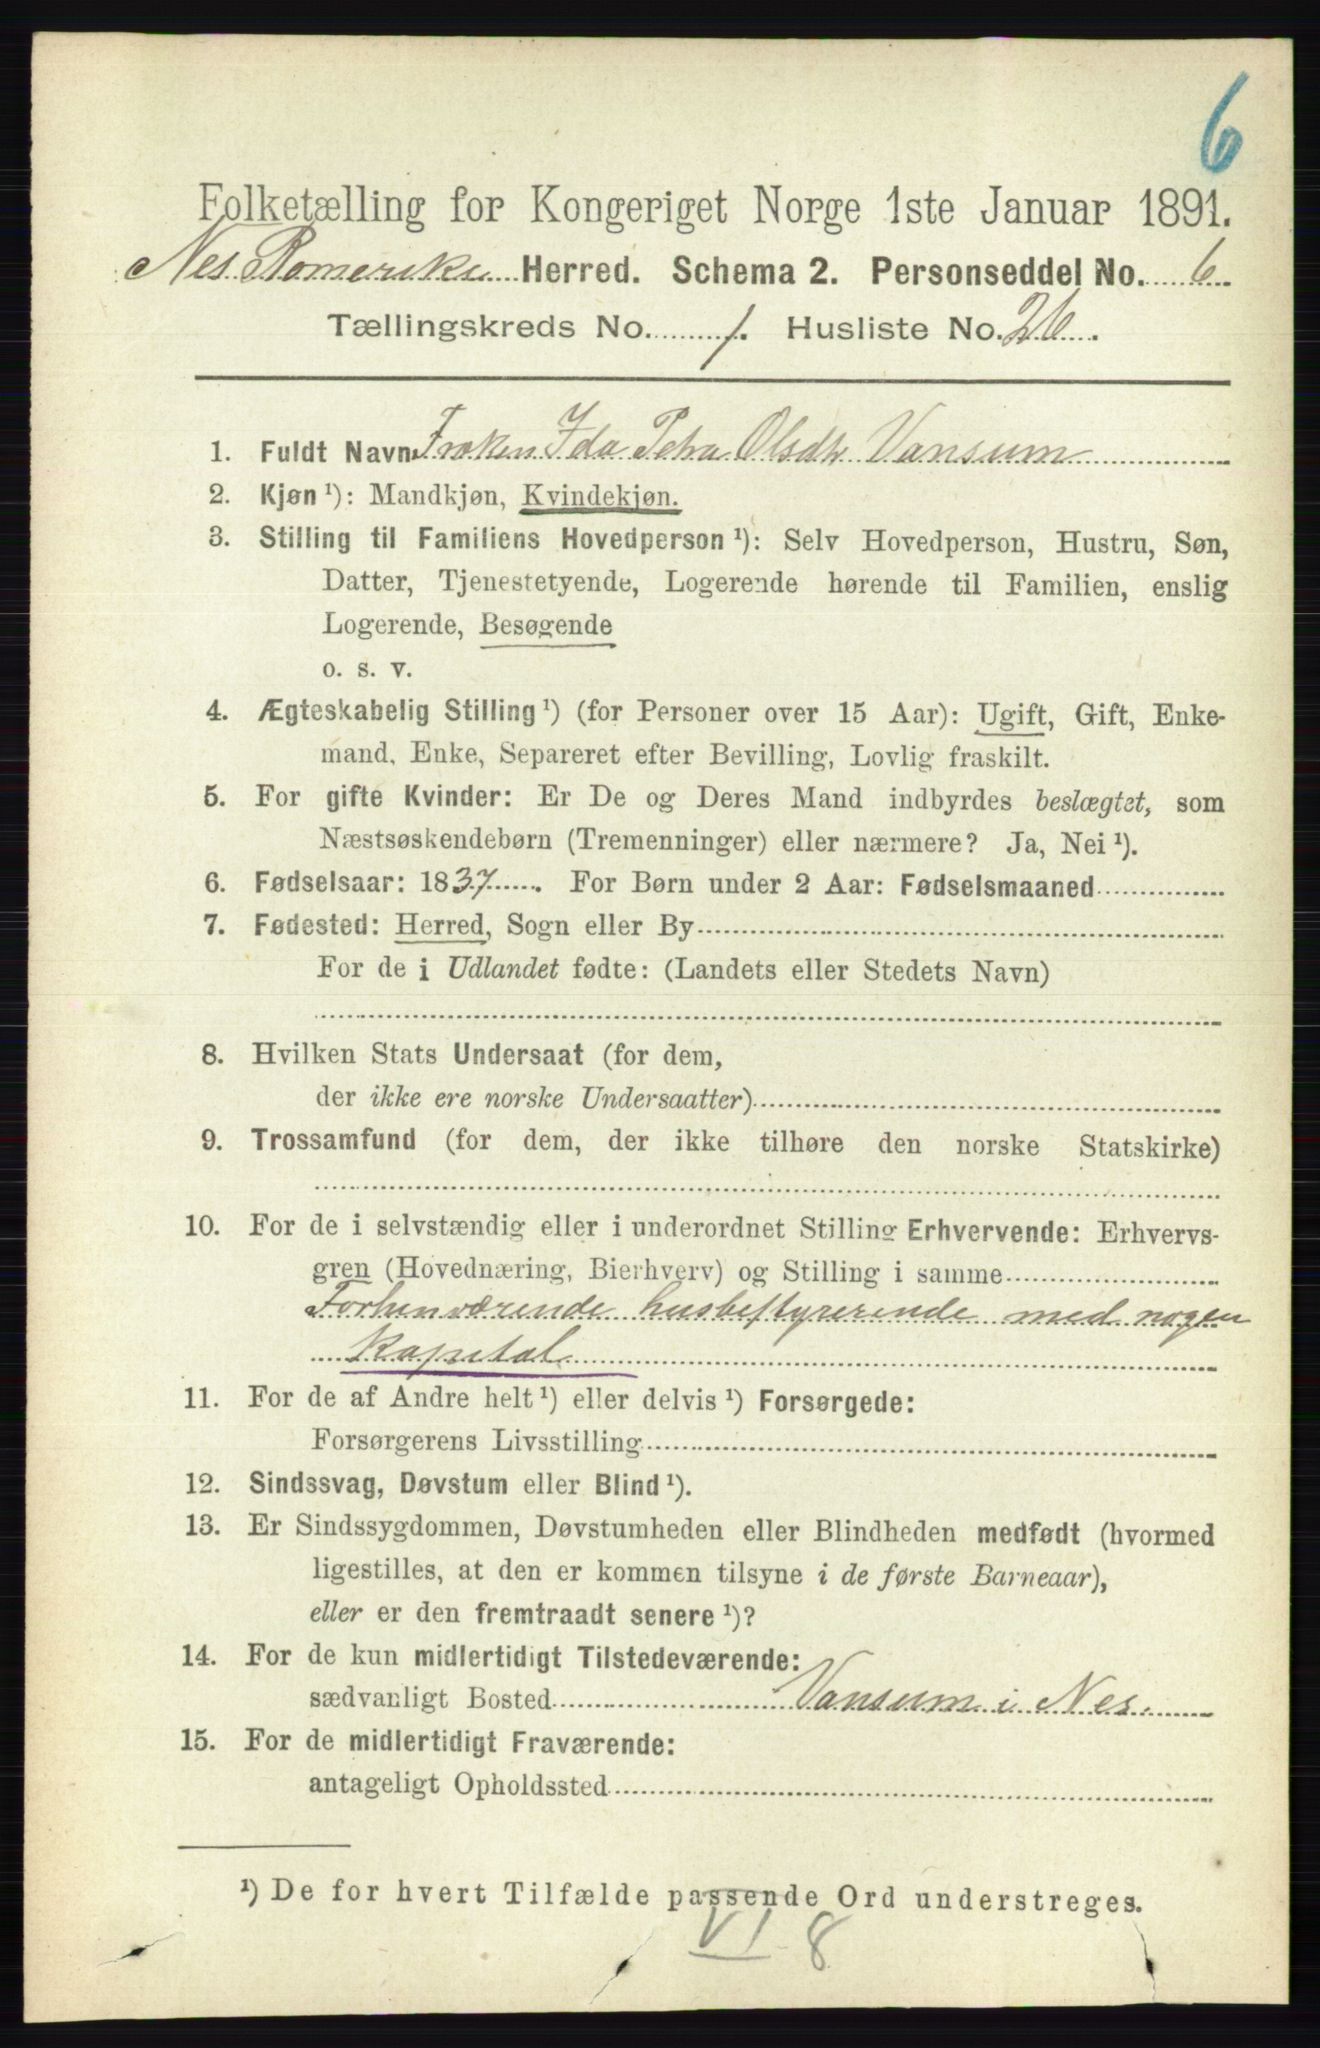 6
Folketælling for Kongeriget Norge 1ste Januar 1891.
Nes Romerike Herred. Schema 2. Personseddel No. 6
Tællingskreds No. 1. Husliste No. 26.
1. Fuldt Navn Frøken Ida Petra Olsdtr Vansum
2. Kjøn ¹): Mandkjøn, Kvindekjøn.
3. Stilling til Familiens Hovedperson ¹): Selv Hovedperson, Hustru, Søn,
Datter, Tjenestetyende, Logerende hørende til Familien, enslig
Logerende, Besøgende
o. s. v.
4. Ægteskabelig Stilling ¹) (for Personer over 15 Aar): Ugift, Gift, Enke-
mand, Enke, Separeret efter Bevilling, Lovlig fraskilt.
5. For gifte Kvinder: Er De og Deres Mand indbyrdes beslægtet, som
Næstsøskendebørn (Tremenninger) eller nærmere? Ja, Nei ¹).
6. Fødselsaar: 1837. For Børn under 2 Aar: Fødselsmaaned
7. Fødested: Herred, Sogn eller By
For de i Udlandet fødte: (Landets eller Stedets Navn)
8. Hvilken Stats Undersaat (for dem,
der ikke ere norske Undersaatter)
9. Trossamfund (for dem, der ikke tilhøre den norske Statskirke)
10. For de i selvstændig eller i underordnet Stilling Erhvervende: Erhvervs-
gren (Hovednæring, Bierhverv) og Stilling i samme
Forhenværende husbestyrerende med nogen
Kapital
11. For de af Andre helt ¹) eller delvis ¹) Forsørgede:
Forsørgerens Livsstilling
12. Sindssvag, Døvstum eller Blind ¹).
13. Er Sindssygdommen, Døvstumheden eller Blindheden medfødt (hvormed
ligestilles, at den er kommen tilsyne i de første Barneaar),
eller er den fremtraadt senere ¹)?
14. For de kun midlertidigt Tilstedeværende:
sædvanligt Bosted Vansum i Nes.
15. For de midlertidigt Fraværende:
antageligt Opholdssted
¹) De for hvert Tilfælde passende Ord understreges.
VI 8